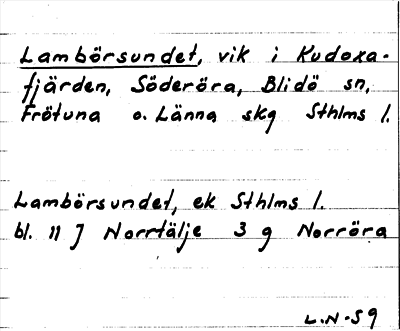 Lambörsundet, vik i Kudoxa-
fjärden, Söderöra, Blidö sn,
Frötuna o. Länna skg Sthlms l.
Lambörsundet, ek Sthlms l.
bl. 11 J Norrtälje 3 g Norröra
L.N-59